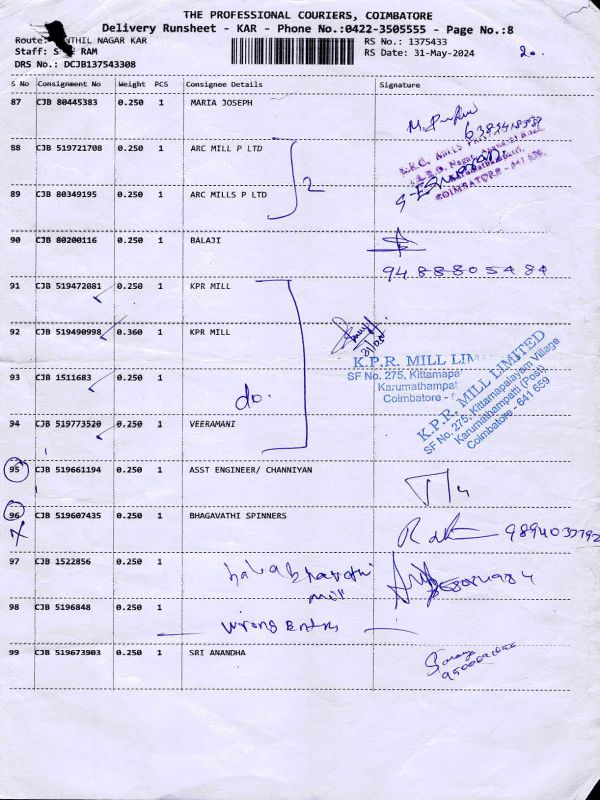 THE PROFESSIONAL COURIERS, COIMBATORE
Delivery Runsheet - KAR - Phone No.:0422-3505555 - Page No.:8
Route: NTHIL NAGAR KAR
RS No.: 1375433
Staff: S RAM
RS Date: 31-May-2024
20.
DRS No.: DCJB137543308
S No Consignment No Weight PCS Consignee Details Signature
87 CJB 80445383 0.250 1 MARIA JOSEPH
88 CJB 519721708 0.250 1 ARC MILL P LTD
2
89 CJB 80349195 0.250 1 ARC MILLS P LTD
COIMBATORE - 641
90 CJB 80200116 0.250 1 BALAJI
9488805484
91 CJB 519472081 0.250 1 KPR MILL
92 CJB 519490998 0.360 1 KPR MILL
K.P.R. MILL LIM
SF No. 275, Kittamapa
Karumathampat
Coimbatore -
K.P.R. MILL LIMITED
SF No. 275, Kittamapalayam Village
Karumathampatti (Post)
Coimbatore - 641 659
93 CJB 1511683 0.250 1
do.
94 CJB 519773520 0.250 1 VEERAMANI
95 CJB 519661194 0.250 1 ASST ENGINEER/ CHANNIYAN
96 CJB 519607435 0.250 1 BHAGAVATHI SPINNERS
X
97 CJB 1522856 0.250 1
mill
98 CJB 5196848 0.250 1
wrong entry
99 CJB 519673903 0.250 1 SRI ANANDHA